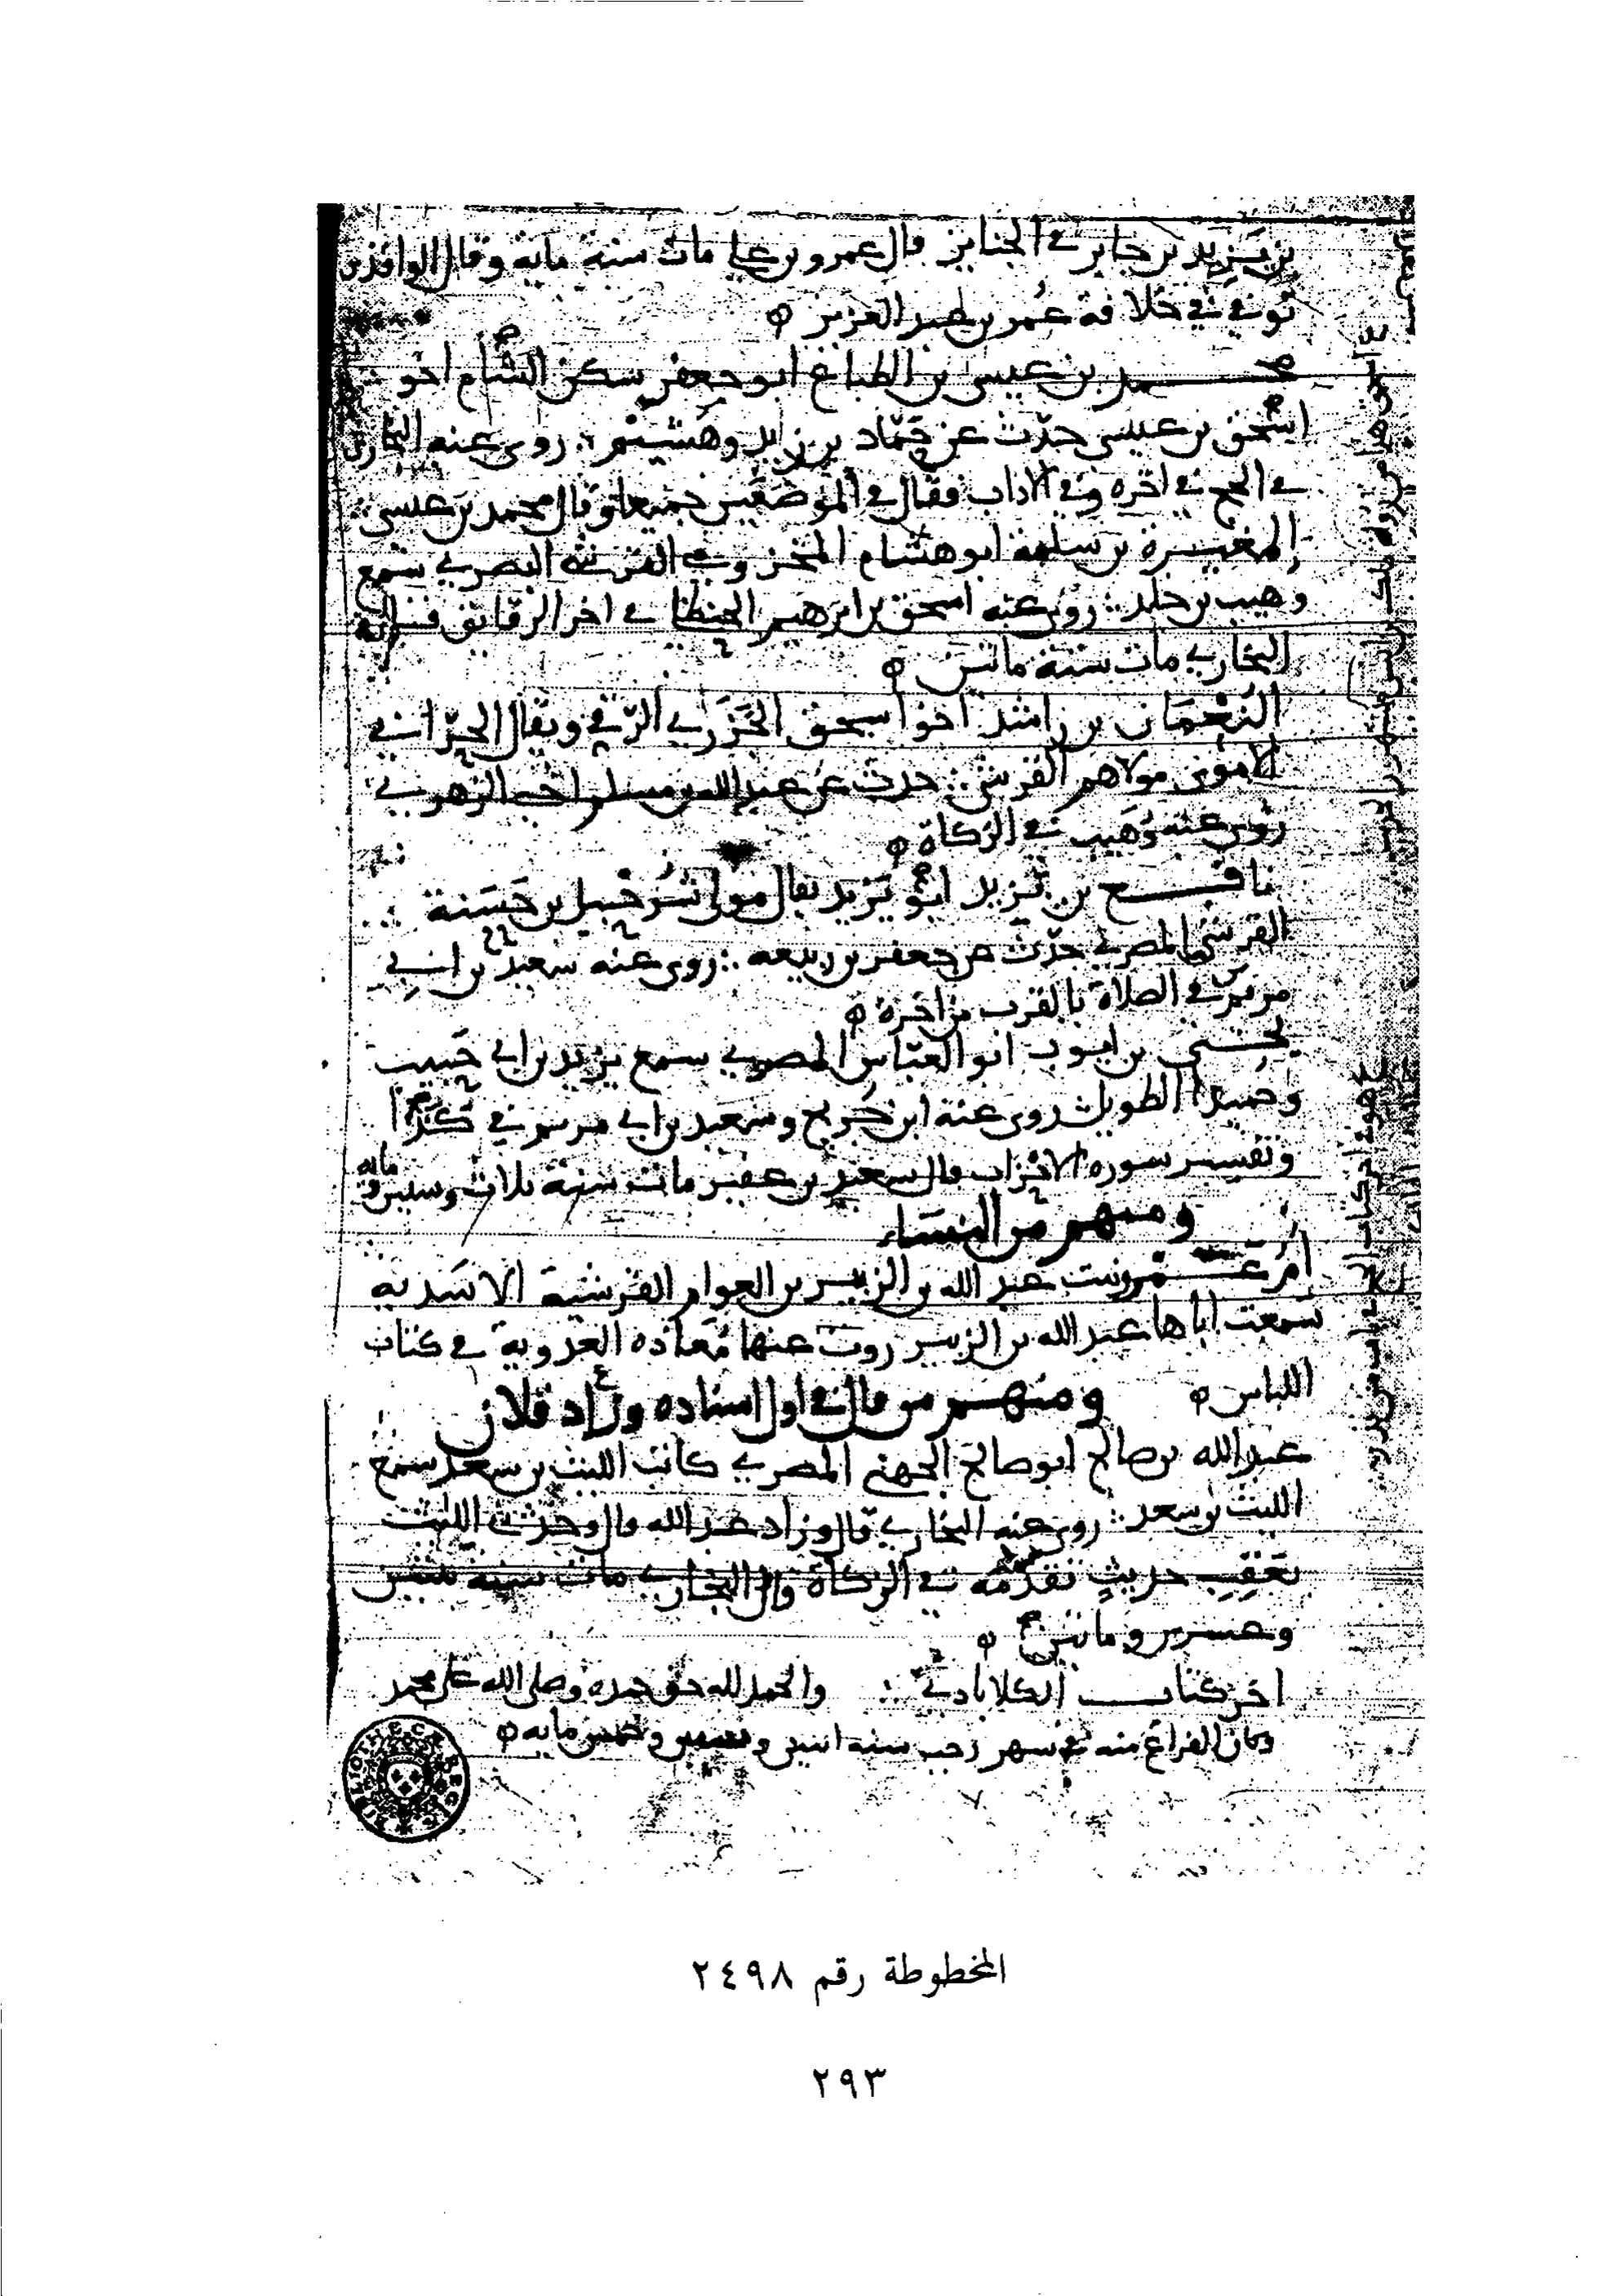 بن يزيد بن جابر في الجنايز قال عمرو بن علي مات سنة ماية وقال الواقدي
توفي في خلافة عمر بن عبد العزيز
محمد بن عيسى بن الطباع ابو جعفر سكن الشام اخو
اسحق بن عيسى حدث عن حماد بن زيد وهشيم روى عنه البخاري
في الحج في اخره وفي الاداب فقال في الموضعين جميعا وقال محمد بن عيسى
المغيرة بن سلمة ابو هشام المخزومي القرشي البصري سمع
وهيب بن خلد روى عنه اسحق بن ابرهيم الحنظلي في اخر الرقايق
البخاري مات سنة مائتين
النعمان بن راشد اخو اسحق الجزري الرقي ويقال الحراني
الاموي مولاهم القرشي حدث عن عبد الله بن مسلم اخي الزهري
روى عنه وهيب في الزكاة
نافع بن يزيد ابو يزيد يقال مولى شرحبيل بن حسنة
القرشي المصري حدث عن جعفر بن ربيعه روى عنه سعيد بن ابي
مريم في الصلاة بالقرب من اخره
يحيى بن ايوب ابو العباس المصري سمع يزيد بن ابي حبيب
وحميدا الطويل روى عنه ابن جريج وسعيد بن ابي مريم في
وتفسير سورة الاحزاب قال سعيد بن عفير مات سنة ثلاث وستين ومايه
ومنهم من النساء
ام عمرو بنت عبد الله بن الزبير بن العوام القرشية الاسديه
سمعت اباها عبد الله بن الزبير روت عنها معاذه العدوية في كتاب
اللباس
ومنهم من قال في اول اسناده وزاد فلان
عبد الله بن صالح ابو صالح الجهني المصري كاتب الليث بن سعد سمع
الليث بن سعد روى عنه البخاري قال وزاد عبد الله قال وحدثني الليث
تعقيب حديث تقدمه في الزكاة قال البخاري مات سنة ثنتين
وعشرين ومائتين
اخر كتاب الكلاباذي والحمد لله حق حمده وصلى الله على محمد
وكان الفراغ منه في شهر رجب سنه اثنين وتسعين وخمس مايه
المخطوطة رقم ٢٤٩٨
٢٩٣